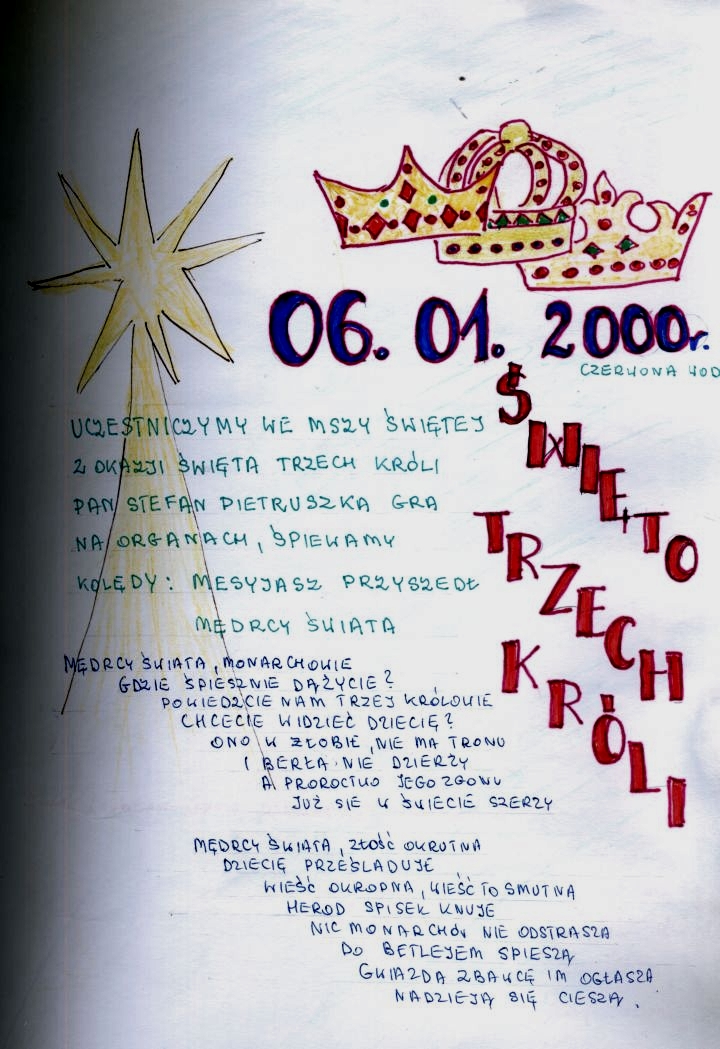 06. 01. 2000r.
CZERWONA WOD
ŚWIĘTO
TRZECH
KRÓLI
UCZESTNICZYMY WE MSZY ŚWIĘTEJ
Z OKAZJI ŚWIĘTA TRZECH KRÓLI
PAN STEFAN PIETRUSZKA GRA
NA ORGANACH, ŚPIEWAMY
KOLĘDY: MESYJASZ PRZYSZEDŁ
MĘDRCY ŚWIATA
MĘDRCY ŚWIATA, MONARCHOWIE
GDZIE ŚPIESZNIE DĄŻYCIE?
POWIEDZCIE NAM TRZEJ KRÓLOWIE
CHCECIE WIDZIEĆ DZIECIĘ?
ONO W ŻŁOBIE, NIE MA TRONU
I BERŁA NIE DZIERŻY
A PROROCTWO JEGO ZGONU
JUŻ SIĘ W ŚWIECIE SZERZY
MĘDRCY ŚWIATA, ZŁOŚĆ OKRUTNA
DZIECIĘ PRZEŚLADUJE
WIEŚĆ OKROPNA, WIEŚĆ TO SMUTNA
HEROD SPISEK KNUJE
NIC MONARCHÓW NIE ODSTRASZA
DO BETLEJEM SPIESZĄ
GWIAZDA ZBAWCĘ IM OGŁASZA
NADZIEJĄ SIĘ CIESZĄ.